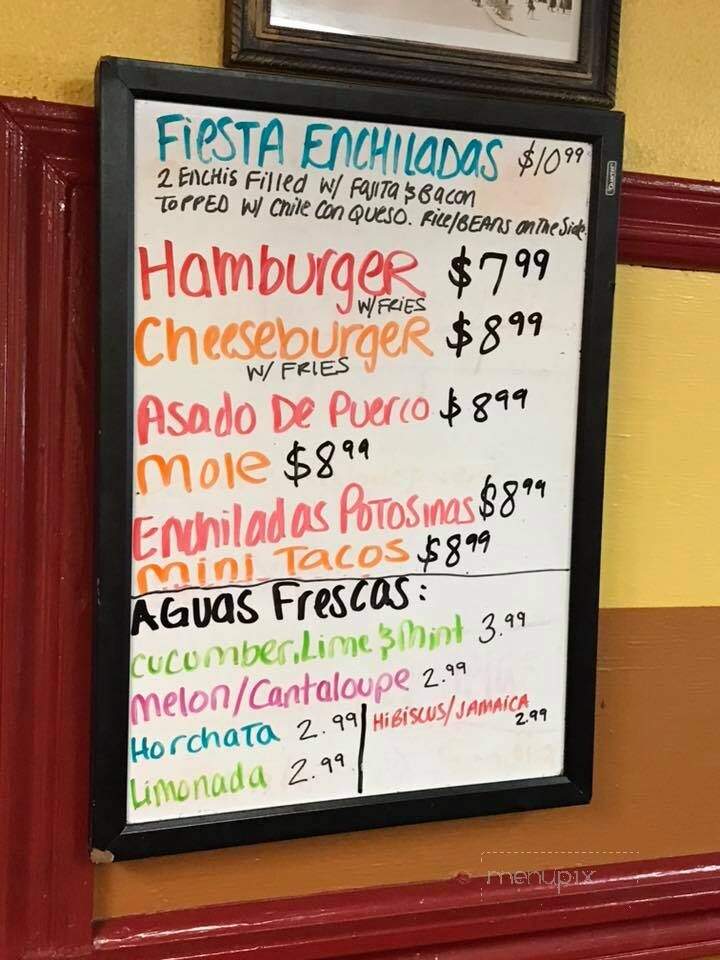 FiESTA ENCHILADAS $10.99
2 ENCHIS Filled W/ FAJITA & BACON
TOPPED W/ CHILE CON QUESO. RICE/BEANS on The Side.
HamburgeR $7.99
W/FRIES
CheeseburgeR $8.99
W/ FRIES
Asado De Puerco $8.99
mole $8.99
Enchiladas PoTosinas $8.99
mini Tacos $8.99
AGUas FresCas:
cucumber, Lime & Mint 3.99
melon/Cantaloupe 2.99
HorchaTa 2.99
HiBiSCUS/JAMAiCA 2.99
Limonada 2.99
menupix